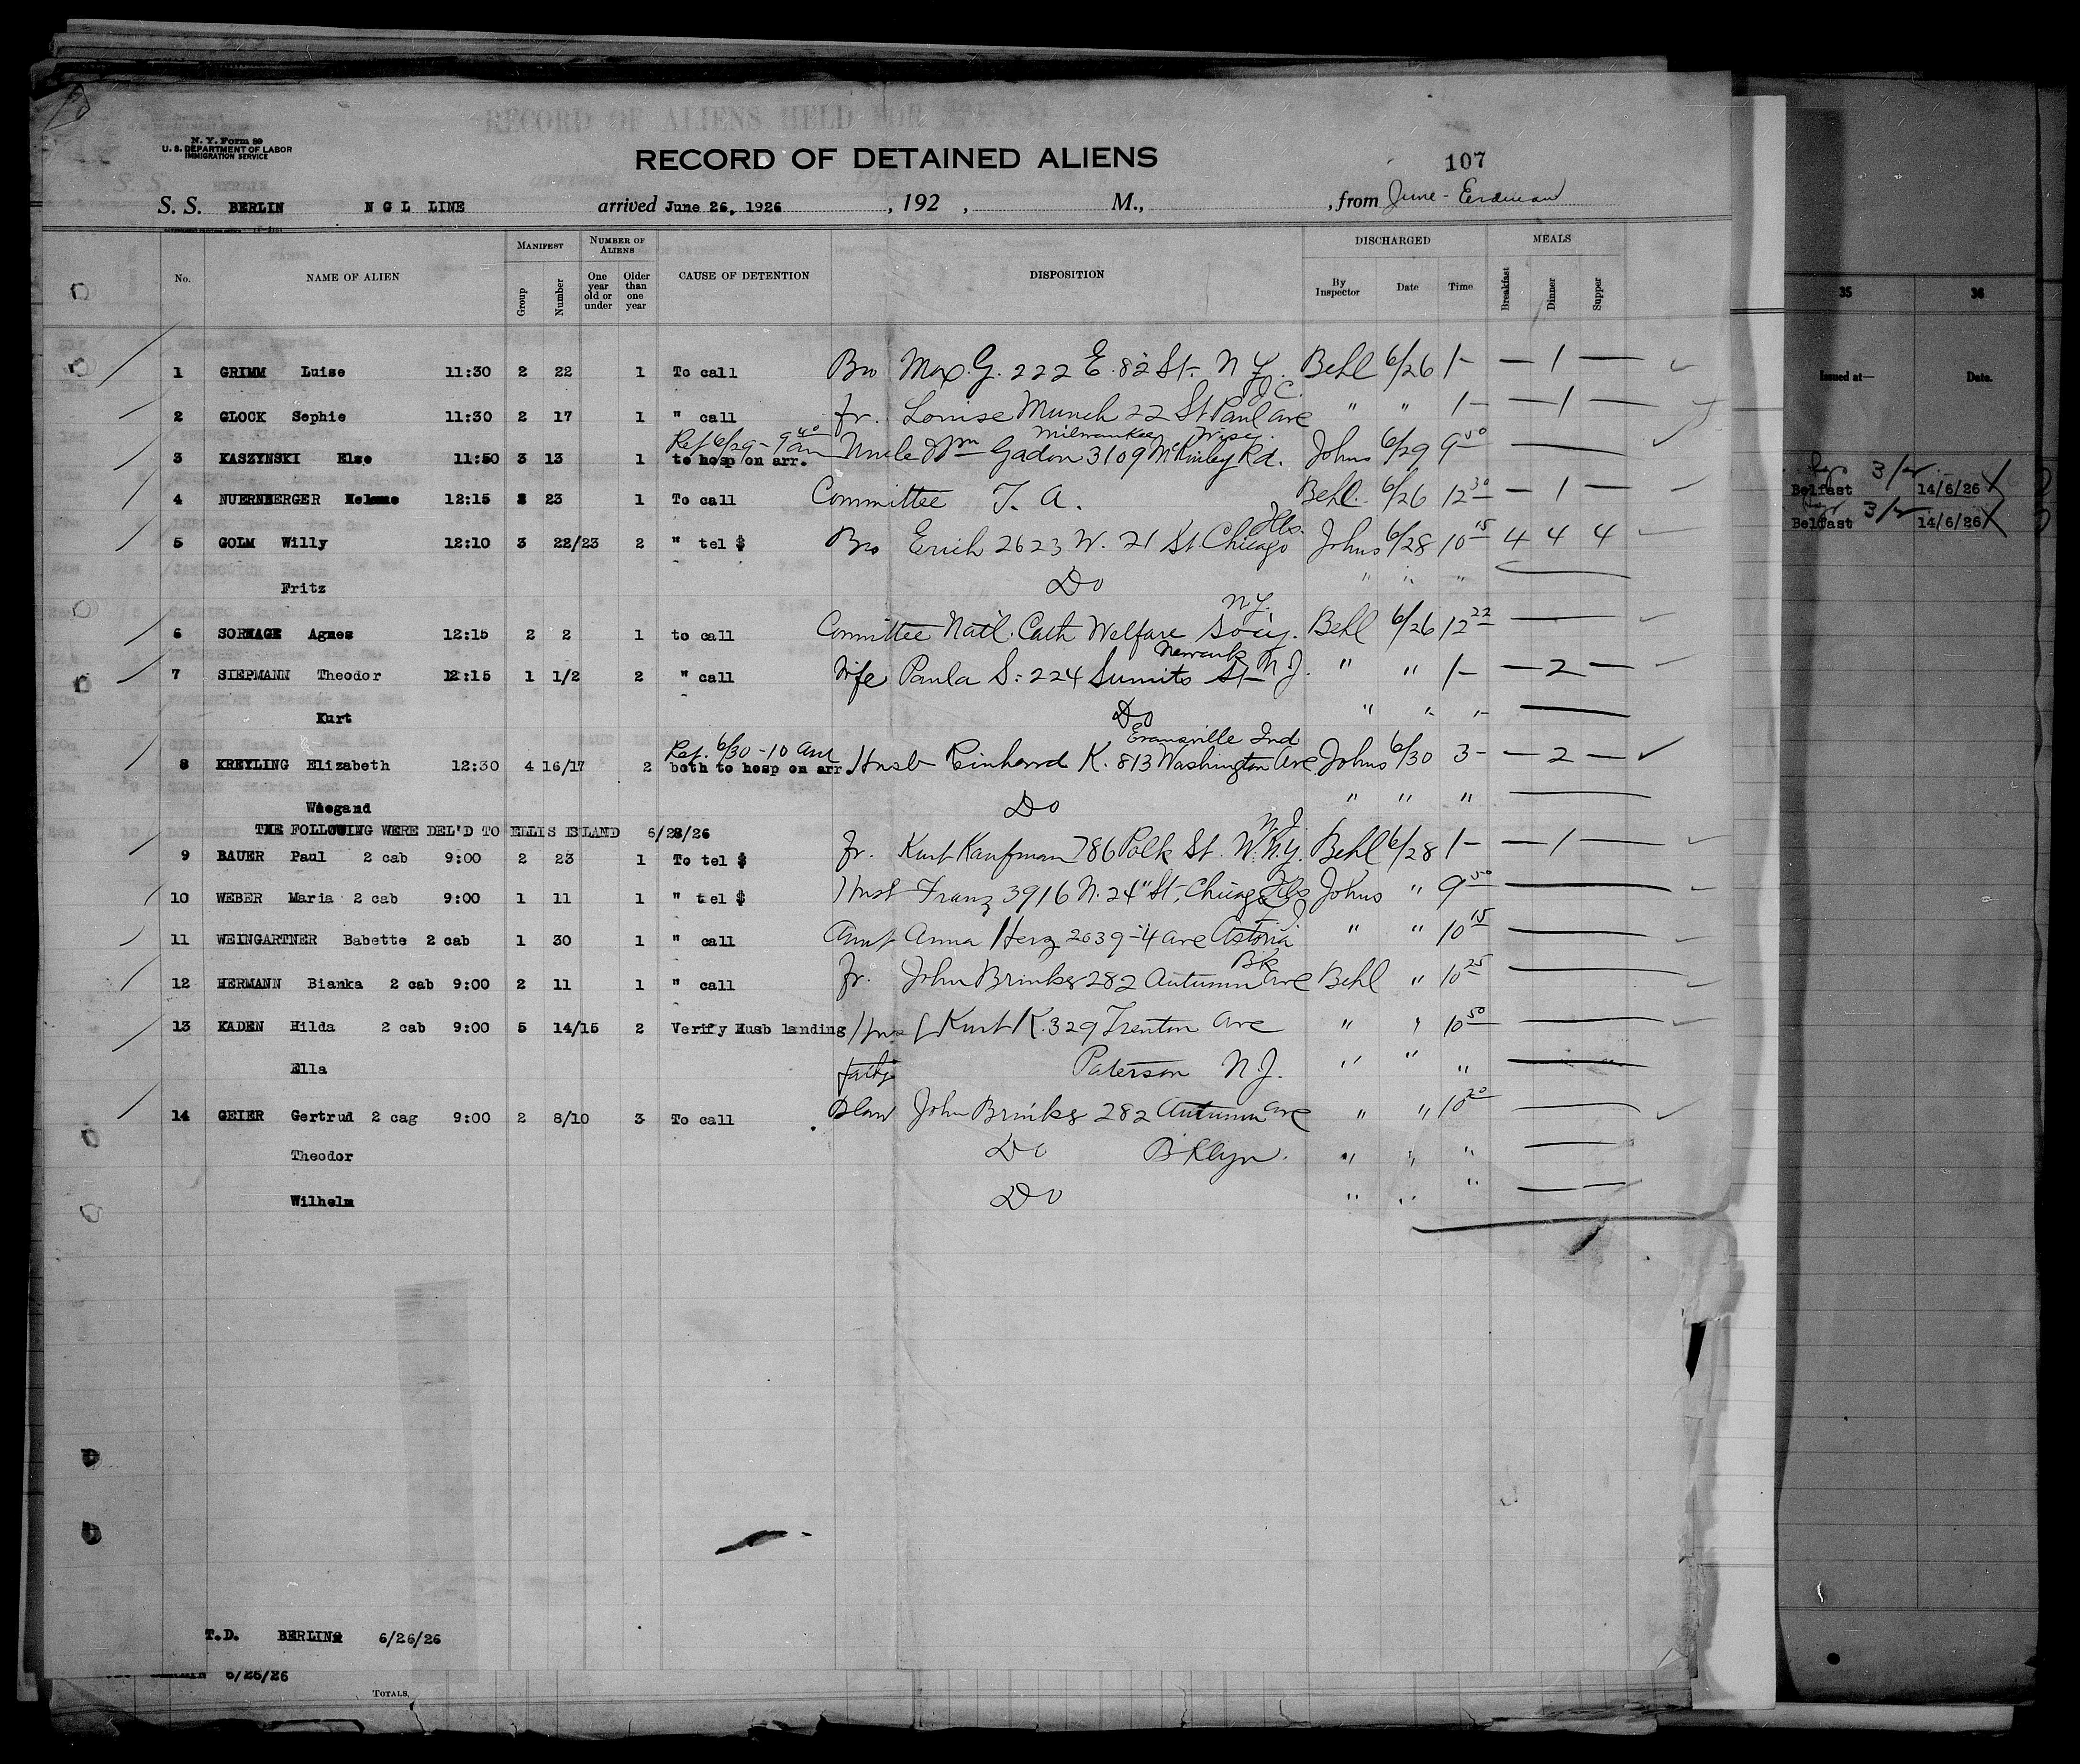 RECORD OF ALIENS HELD FOR
N. Y. Form 89
U. S. DEPARTMENT OF LABOR
IMMIGRATION SERVICE
RECORD OF DETAINED ALIENS
107
S. S. BERLIN N G L LINE arrived June 26, 1926, 192 , M., , from June - Erdman
No. NAME OF ALIEN MANIFEST Group Number NUMBER OF ALIENS One year old or under Older than one year CAUSE OF DETENTION DISPOSITION DISCHARGED By Inspector Date Time MEALS Breakfast Dinner Supper
1 GRIMM Luise 11:30 2 22 1 To call Bro Max G. 222 E. 82 St. N Y. Behl 6/26 1- — 1 —
J. C.
2 GLOCK Sophie 11:30 2 17 1 " call fr. Louise Munch 22 St Paul ave " " 1- — 1 —
Rel 6/29 - 9 40 am Milwaukee Wisc.
3 KASZYNSKI Else 11:50 3 13 1 to hosp on arr. Uncle Wm Gadon 3109 McKinley Rd. Johns 6/29 9 50 —
4 NUERNBERGER Helene 12:15 23 1 To call Committee T. A. Behl. 6/26 12 30 — 1 —
Ills.
5 GOLM Willy 12:10 3 22/23 2 " tel $ Bro Erich 2623 W. 21 St Chicago Johns 6/28 10 15 4 4 4
Fritz Do " " "
N.Y.
6 SORHAGE Agnes 12:15 2 2 1 to call Committee Natl. Cath Welfare Soc'y. Behl 6/26 12 22 —
Newark
7 SIEPMANN Theodor 12:15 1 1/2 2 " call Wife Paula S. 224 Sumito St N J. " " 1- — 2 —
Kurt Do " " " —
Rel. 6/30 - 10 am Evansville Ind
8 KREYLING Elizabeth 12:30 4 16/17 2 both to hosp on arr. Husb Reinherd K. 813 Washington Ave Johns 6/30 3- — 2 —
Wiegand Do " " " —
THE FOLLOWING WERE DEL'D TO ELLIS ISLAND 6/28/26
N J
9 BAUER Paul 2 cab 9:00 2 23 1 To tel $ Fr. Kurt Kaufman 786 Polk St. W. N.Y. Behl 6/28 1- — 1 —
10 WEBER Maria 2 cab 9:00 1 11 1 " tel $ Husb Franz 3916 N. 24" St, Chicago Ills Johns " 9 50 —
11 WEINGARTNER Babette 2 cab 1 30 1 " call Aunt Anna Herz 2039-4 ave Astoria " " 10 15 —
Bk
12 HERMANN Bianka 2 cab 9:00 2 11 1 " call Fr. John Brinks 282 Autumn ave Behl " 10 25 —
13 KADEN Hilda 2 cab 9:00 5 14/15 2 Verify Husb landing Husb Kurt K. 329 Trenton Ave " " 10 50 —
Ella Paterson N. J. " " " —
14 GEIER Gertrud 2 cag 9:00 2 8/10 3 To call John Brinks 282 Autumn ave " " 10 20 —
Theodor Do B'klyn. " " " —
Wilhelm Do " " " —
T.D. BERLIN 6/26/26
6/26/26
TOTALS,
35 36
Issued at— Date.
Belfast 14/6/26
Belfast 14/6/26